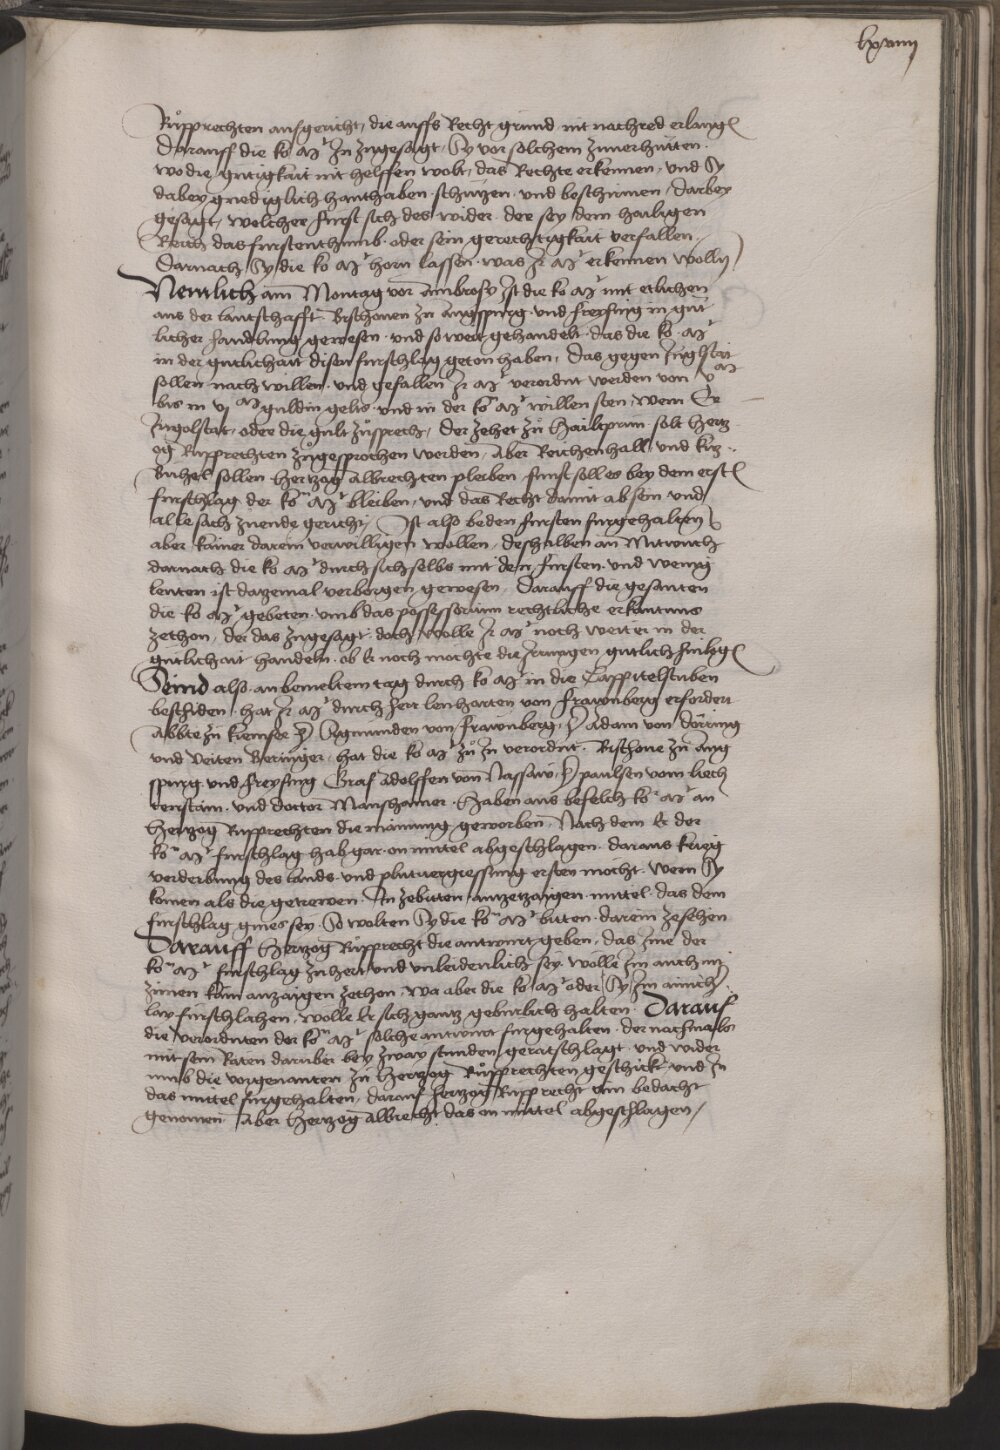 lxxiiij
Růpprechten aufgericht, die auffs Recht grund, nit nachred erlang
Darauff die ko Mt In zugesagt, Sy vor solchem zuuerhuiten
wo die gutigkait nit helffen wolt, das Rechte erkennen, und Sy
dabey gnediglich hanthaben, schutzen und beschirmen, Darbey
gesagt, welcher furst sich des wider, der sey dem hailigen
Reich das furstenthumb oder sein gerechtigkait verfallen
Darnach Sy die ko Mt horn lassen, was Ir Mt erkennen wolln
Nemlich am Montag vor Ambrosy Ist die ko Mt mit etlichen
aus der lantschafft, Bischouen zu Augspurg und Freysing in gut
licher handlung gewesen, und so weit gehandelt, das die ko Mt
in der gutlichait disen furschlag geton haben, das gegen Inglstat
sollen nach willen und gefallen Ir Mt verordnt werden von v M
bis in vj M guldin gelts, und in der ko Mt willen sten, wem Er
Ingolstat, oder die gult zůsprech, Der zehet zů hailtprun solt hertz
og Rupprechten zůgesprochen werden, Aber Reichenhall und kitz
Buhel sollen hertzog Albrechten pleiben, sunst solles bey dem erst
furschlag der ko Mt bleiben, und das Recht damit ab sein und
alle sach zuende gericht, Ist also beden fursten furgehalten
aber kainer darein verwilligen wollen, deshalben an Mitwuch
darnach die ko Mt durch sich selbs mit den fursten, und wenig
leuten ist datzemal verborgen gewesen, Darauff die gesanten
die ko Mt gebeten, umb das possessorium rechtliche erkantnus
zethon, der das zugesagt, doch wolle Ir Mt noch weiter in der
gutlichait handeln, ob Er noch mochte die Irrungen gutlich hinleg
Seind also an bemeltem tag durch ko Mt in die Cappitelstuben
beschiden, hat Ir Mt durch herr lenharten von Frawnberg erfordert
Abbte zů kiemsee, her Sigmunden von Frawnberg, her Adam von Törring
und Veiten Beringer, hat die ko Mt zů In verordnt, Bischoue zu Aug
spurg und Freysing Graf Adolffen von Nassaw, her paulsen vom liech
tenstain, und doctor Manshamer, haben aus befelch ko Mt an
Hertzog Rupprechten die mainung geworben, Nach dem Er der
ko Mt furschlag hab gar on mittel abgeschlagen, daraus krieg
verderbung des lands, und plutuergiessung ersten mocht, Wenn Sy
konen als die getrewen In zebieten, antzetzaigen, mittel, das dem
furschlag gmes sey, So wolten Sy die ko Mt biten, darein zesehen
Darauff Hertzog Růpprecht die antwurt geben, das Ime der
ko Mt furschlag zu hert und unleidenlich sey, Wolle Im auch nit
zimen kain anzaigen zethon, wa aber die ko Mt oder Sy Im ainich
lay furschlahen, wolle Er sich gantz geburlich halten, Darauf
die verordnten der ko Mt solche antwurt furgehalten, der nachmals
mit sein Räten daruber bey zway stunden geratschlagt, und wider
umb die vorgenanten zu hertzog Růpprechten geschickt und In
das mittel furgehalten, Darauf hertzog Rupprecht ain bedacht
genomen, Aber Hertzog Albrecht das on mittel abgeschlagen,